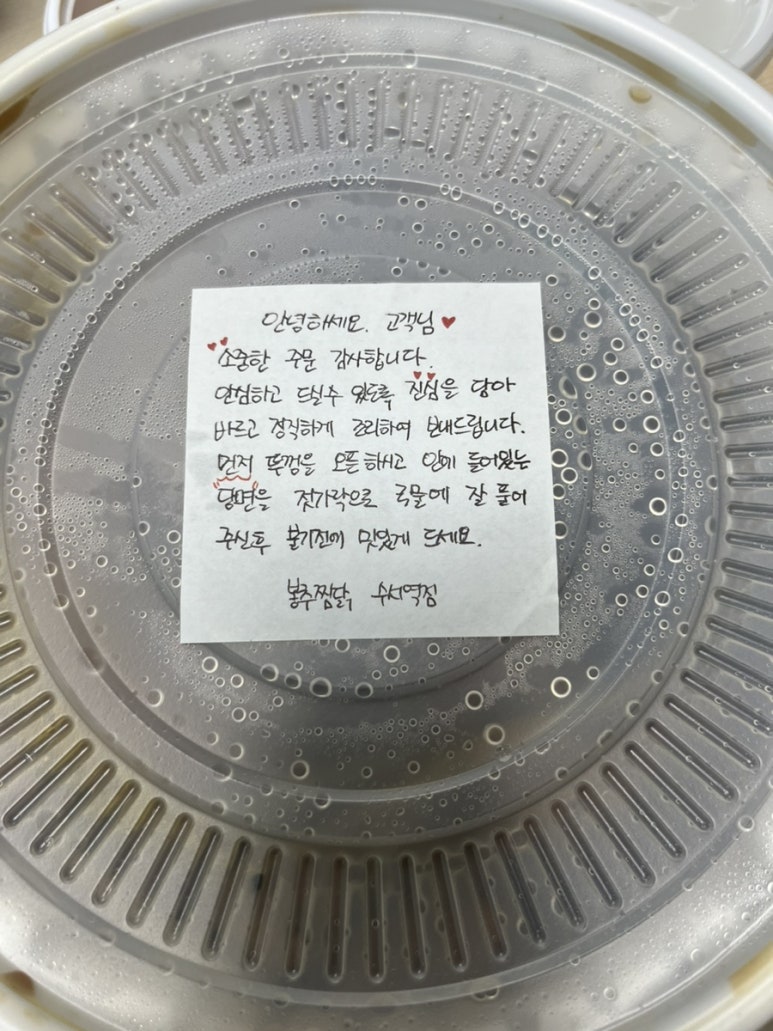 안녕하세요. 고객님
소중한 주문 감사합니다.
안심하고 드실수 있도록 진심을 담아
바르고 정직하게 조리하여 보내드립니다.
먼저 뚜껑을 오픈하시고 안에 들어있는
당면을 젓가락으로 국물에 잘 풀어
주신후 불기전에 맛있게 드세요.
봉추찜닭 수서역점